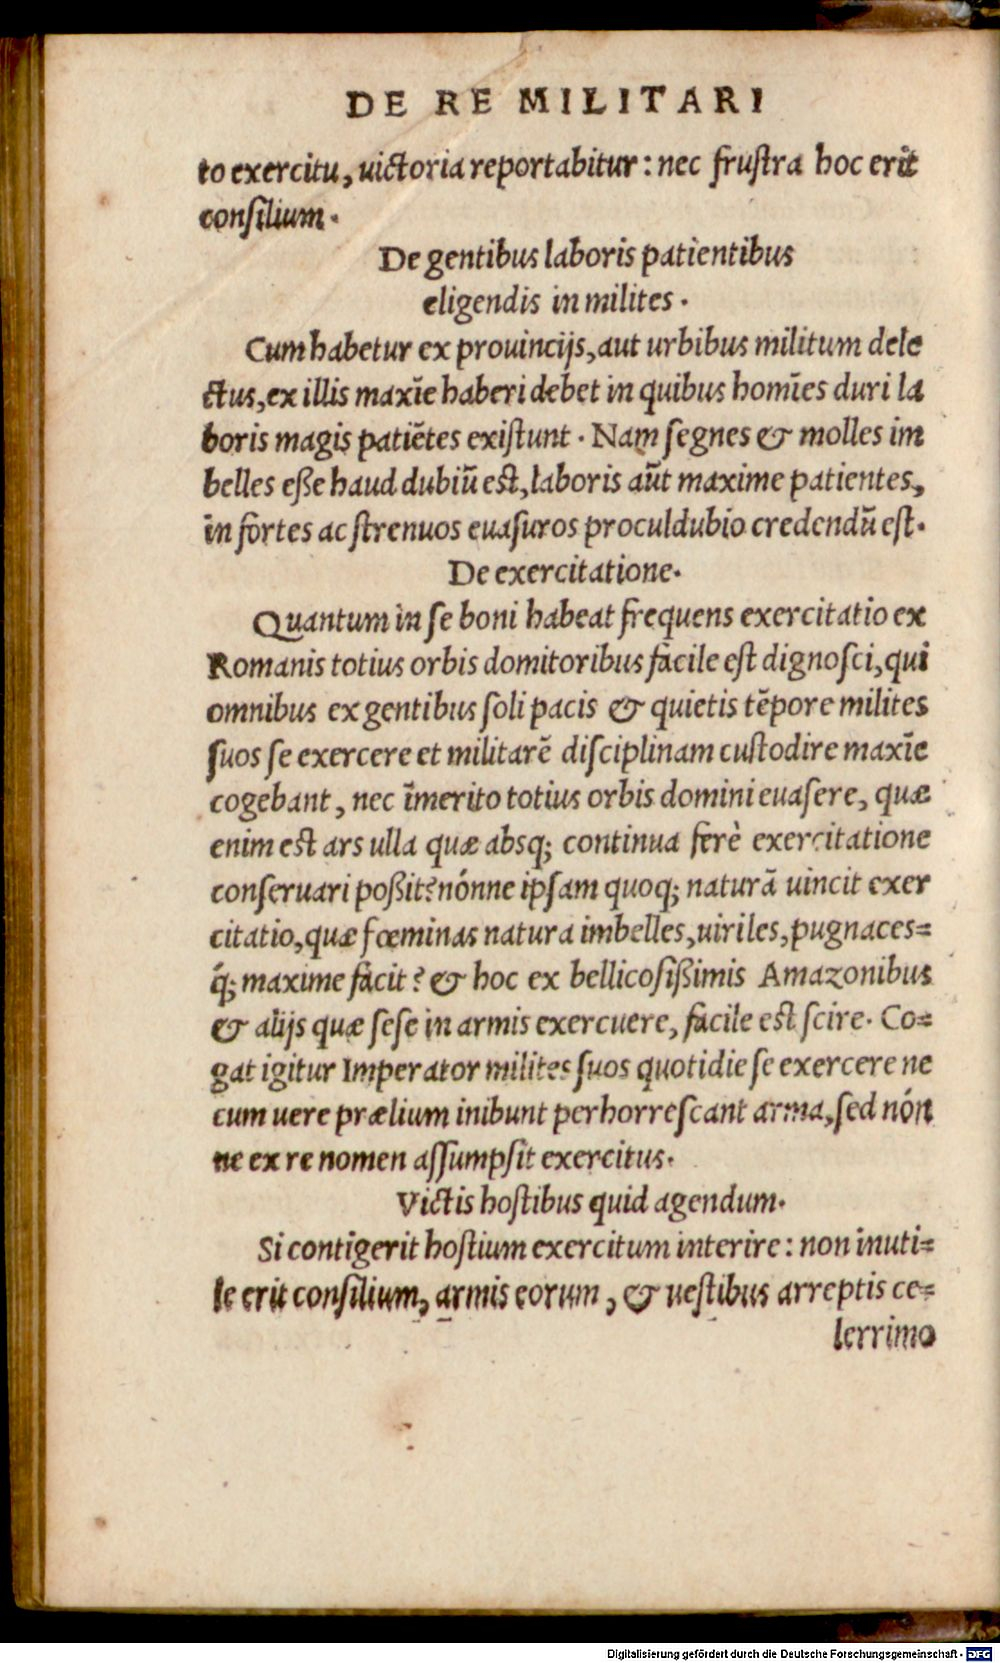 DE RE MILITARI
to exercitu, uictoria reportabitur: nec frustra hoc erit
consilium.
De gentibus laboris patientibus
eligendis in milites.
Cum habetur ex prouincijs, aut urbibus militum dele
ctus, ex illis maxīe haberi debet in quibus homīes duri la
boris magis patiētes existunt. Nam segnes & molles im
belles eße haud dubiū est, laboris aūt maxime patientes,
in fortes ac strenuos euasuros proculdubio credendū est.
De exercitatione.
Quantum in se boni habeat frequens exercitatio ex
Romanis totius orbis domitoribus facile est dignosci, qui
omnibus ex gentibus soli pacis & quietis tēpore milites
suos se exercere et militarē disciplinam custodire maxīe
cogebant, nec īmerito totius orbis domini euasere, quæ
enim est ars ulla quæ absq; continua ferè exercitatione
conseruari poßit? nónne ipsam quoq; naturā uincit exer
citatio, quæ fœminas natura imbelles, uiriles, pugnaces=
q́; maxime facit? & hoc ex bellicosißimis Amazonibus
& alijs quæ sese in armis exercuere, facile est scire. Co=
gat igitur Imperator milites suos quotidie se exercere ne
cum uere prælium inibunt perhorrescant arma, sed nón
ne ex re nomen assumpsit exercitus.
Victis hostibus quid agendum.
Si contigerit hostium exercitum interire: non inuti=
le erit consilium, armis eorum, & uestibus arreptis ce=
lerrimo
Digitalisierung gefördert durch die Deutsche Forschungsgemeinschaft - DFG